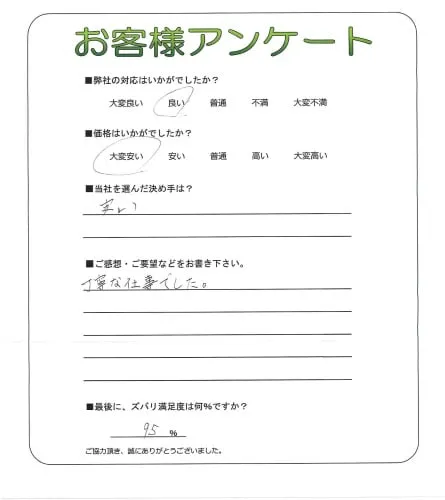 お客様アンケート
■弊社の対応はいかがでしたか?
大変良い 良い 普通 不満 大変不満
■価格はいかがでしたか?
大変安い 安い 普通 高い 大変高い
■当社を選んだ決め手は?
安い
■ご感想・ご要望などをお書き下さい。
丁寧な仕事でした。
■最後に、ズバリ満足度は何%ですか?
95 %
ご協力頂き、誠にありがとうございました。